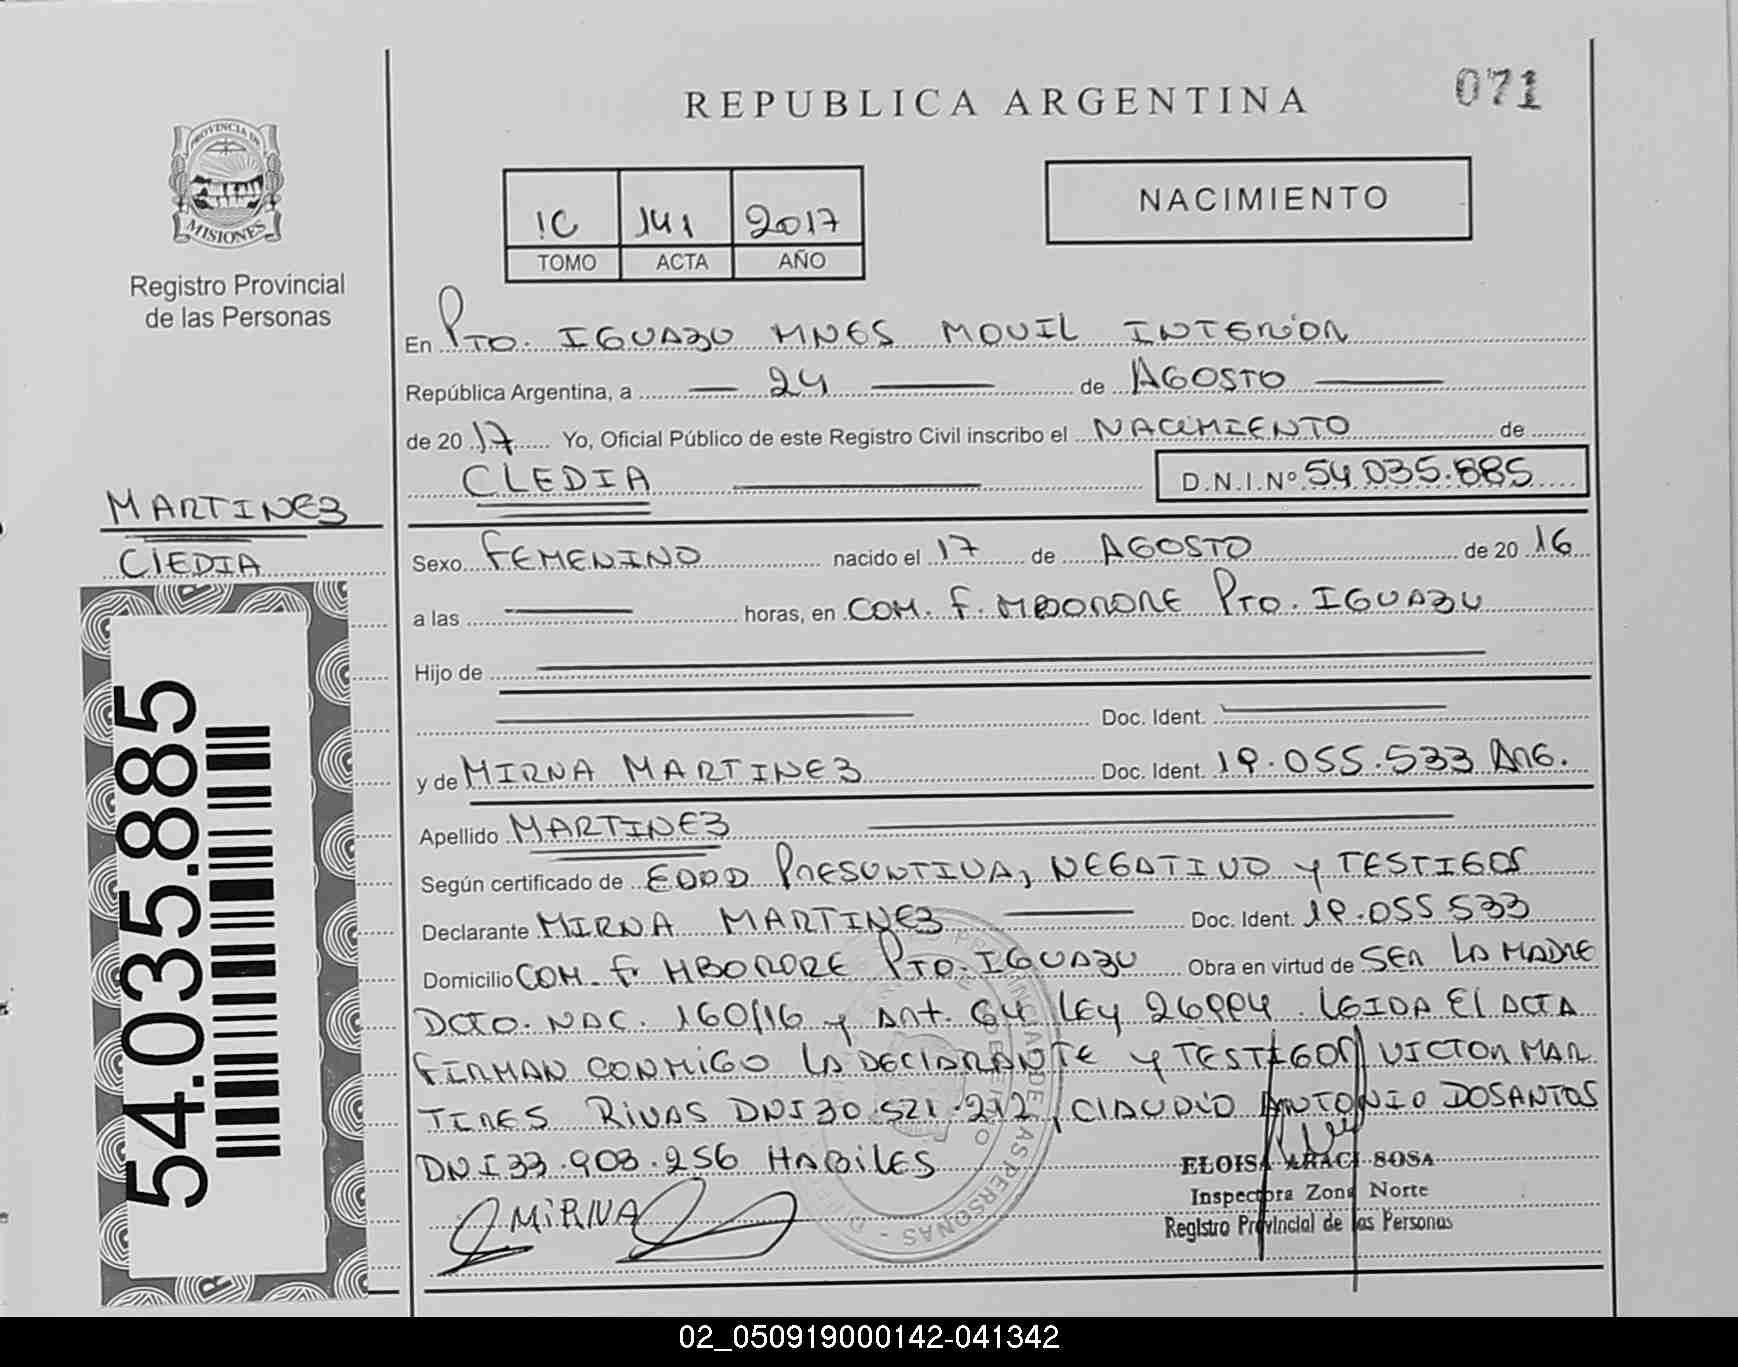 REPUBLICA ARGENTINA
071
PROVINCIA DE
MISIONES
Registro Provincial
de las Personas
1C 141 2017
TOMO ACTA AÑO
NACIMIENTO
En PTO. IGUAZU MNES MOVIL INTERIOR
República Argentina, a 24 de AGOSTO
de 2017 Yo, Oficial Público de este Registro Civil inscribo el NACIMIENTO de
CLEDIA D.N.I.Nº 54.035.885
MARTINEZ
CLEDIA
54.035.885
Sexo FEMENINO nacido el 17 de AGOSTO de 2016
a las horas, en COM. F. MBORORE PTO. IGUAZU
Hijo de
Doc. Ident.
y de MIRNA MARTINEZ Doc. Ident. 19.055.533 ARG.
Apellido MARTINEZ
Según certificado de EDAD PRESUNTIVA, NEGATIVO y TESTIGOS
Declarante MIRNA MARTINEZ Doc. Ident. 19.055.533
Domicilio COM. F. MBORORE PTO. IGUAZU Obra en virtud de SER LA MADRE
DCTO. NAC. 160/16 y ART. 64 LEY 26994. LEIDA El ACTA
FIRMAN CONMIGO LA DECLARANTE y TESTIGOS VICTOR MAR
TINES RIVAS DNI 30.521.212, CLAUDIO ANTONIO DOSANTOS
DNI 33.903.256 HABILES
MIRNA
ELOISA ARACI SOSA
Inspectora Zona Norte
Registro Provincial de las Personas
02_050919000142-041342